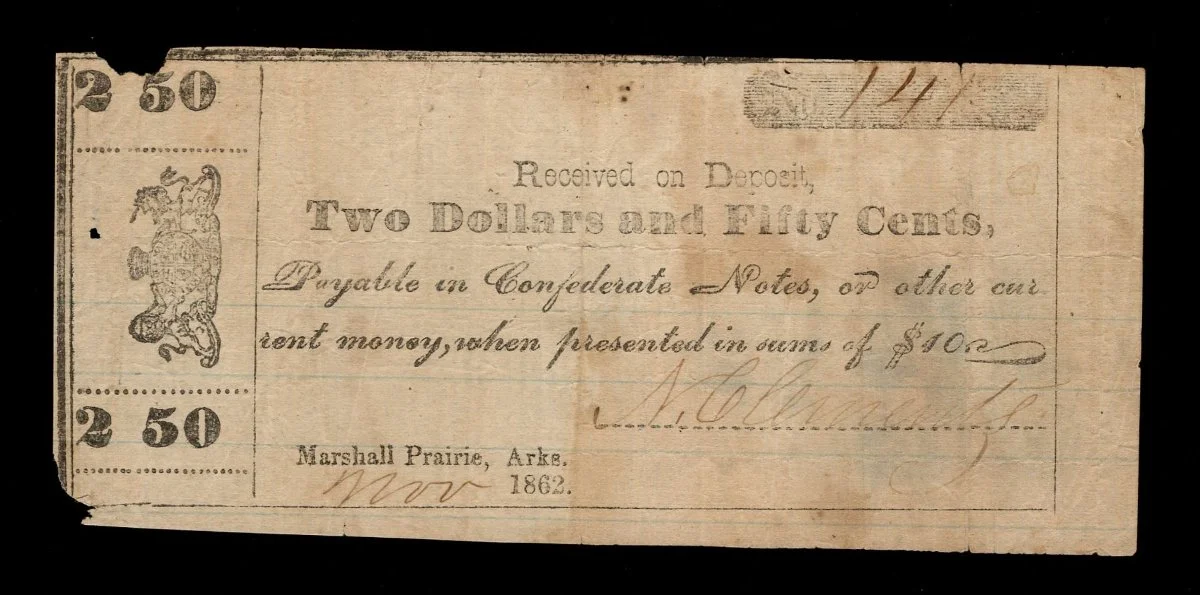 2 50
No 141
Received on Deposit,
Two Dollars and Fifty Cents,
Payable in Confederate Notes, or other cur
rent money, when presented in sums of $10
N. Clements
2 50
Marshall Prairie, Arks.
Nov 1862.